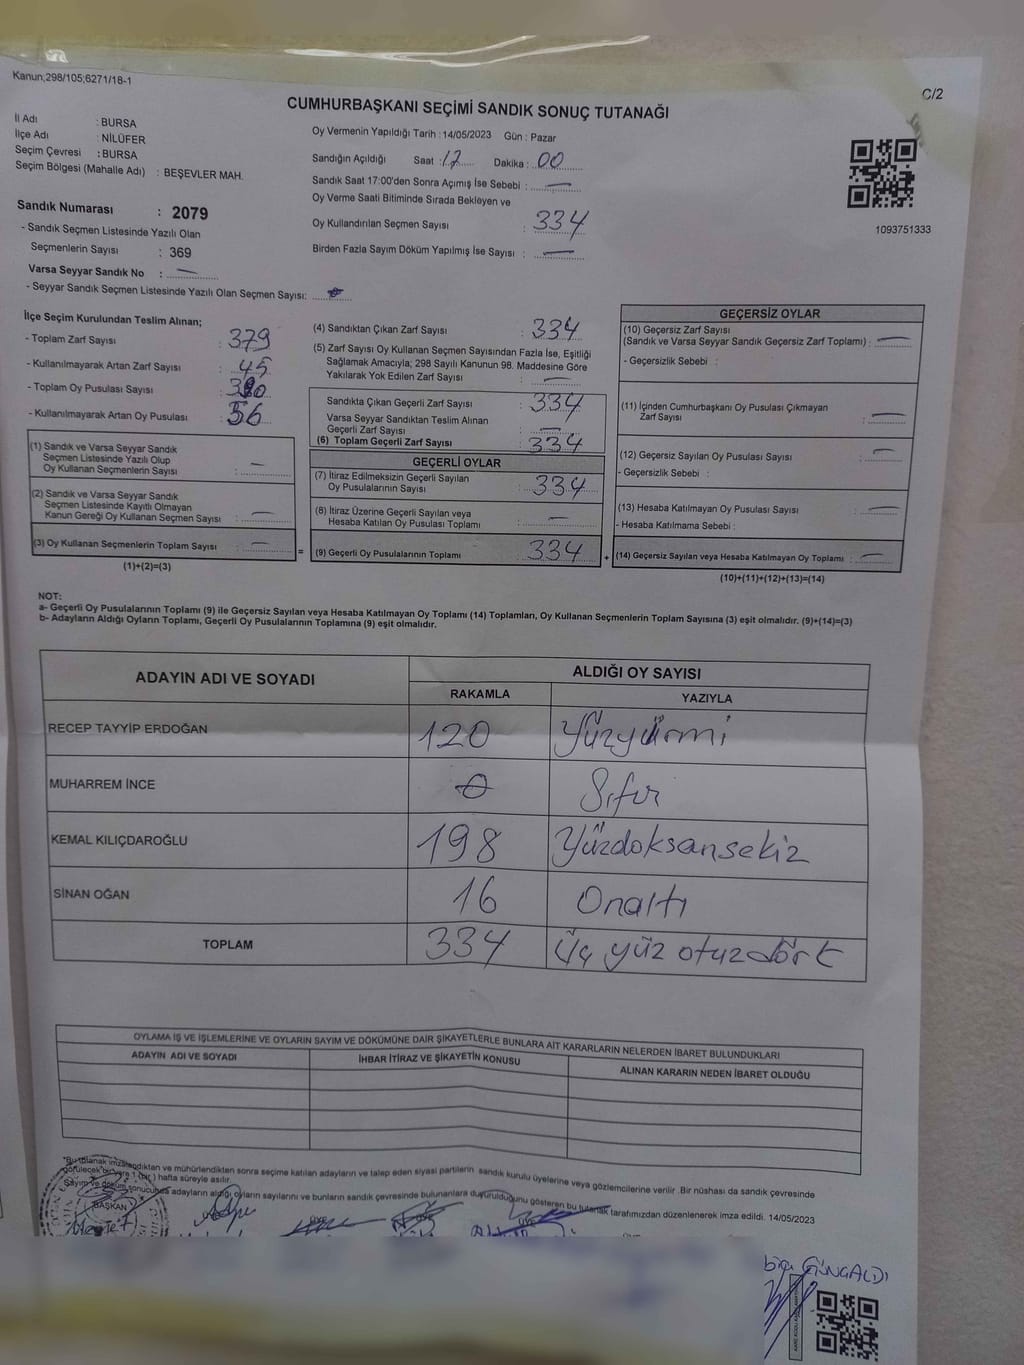 Kanun;298/105;6271/18-1
C/2
CUMHURBAŞKANI SEÇİMİ SANDIK SONUÇ TUTANAĞI
İl Adı : BURSA
İlçe Adı : NİLÜFER
Seçim Çevresi : BURSA
Seçim Bölgesi (Mahalle Adı) : BEŞEVLER MAH.
Sandık Numarası : 2079
- Sandık Seçmen Listesinde Yazılı Olan
Seçmenlerin Sayısı : 369
Varsa Seyyar Sandık No : —
- Seyyar Sandık Seçmen Listesinde Yazılı Olan Seçmen Sayısı:
Oy Vermenin Yapıldığı Tarih : 14/05/2023 Gün : Pazar
Sandığın Açıldığı Saat : 17 Dakika : 00
Sandık Saat 17:00'den Sonra Açımış İse Sebebi : —
Oy Verme Saati Bitiminde Sırada Bekleyen ve
Oy Kullandırılan Seçmen Sayısı : 334
Birden Fazla Sayım Döküm Yapılmış İse Sayısı : —
1093751333
İlçe Seçim Kurulundan Teslim Alınan;
- Toplam Zarf Sayısı : 379
- Kullanılmayarak Artan Zarf Sayısı : 45
- Toplam Oy Pusulası Sayısı :
- Kullanılmayarak Artan Oy Pusulası : 56
(1) Sandık ve Varsa Seyyar Sandık
Seçmen Listesinde Yazılı Olup
Oy Kullanan Seçmenlerin Sayısı : —
(2) Sandık ve Varsa Seyyar Sandık
Seçmen Listesinde Kayıtlı Olmayan
Kanun Gereği Oy Kullanan Seçmen Sayısı : —
(3) Oy Kullanan Seçmenlerin Toplam Sayısı : —
(1)+(2)=(3)
=
(4) Sandıktan Çıkan Zarf Sayısı : 334
(5) Zarf Sayısı Oy Kullanan Seçmen Sayısından Fazla İse, Eşitliği
Sağlamak Amacıyla; 298 Sayılı Kanunun 98. Maddesine Göre
Yakılarak Yok Edilen Zarf Sayısı : —
Sandıkta Çıkan Geçerli Zarf Sayısı : 334
Varsa Seyyar Sandıktan Teslim Alınan
Geçerli Zarf Sayısı : —
(6) Toplam Geçerli Zarf Sayısı : 334
GEÇERLİ OYLAR
(7) İtiraz Edilmeksizin Geçerli Sayılan
Oy Pusulalarının Sayısı : 334
(8) İtiraz Üzerine Geçerli Sayılan veya
Hesaba Katılan Oy Pusulası Toplamı : —
(9) Geçerli Oy Pusulalarının Toplamı 334
+
GEÇERSİZ OYLAR
(10) Geçersiz Zarf Sayısı
(Sandık ve Varsa Seyyar Sandık Geçersiz Zarf Toplamı) : —
- Geçersizlik Sebebi :
(11) İçinden Cumhurbaşkanı Oy Pusulası Çıkmayan
Zarf Sayısı : —
(12) Geçersiz Sayılan Oy Pusulası Sayısı : —
- Geçersizlik Sebebi :
(13) Hesaba Katılmayan Oy Pusulası Sayısı : —
- Hesaba Katılmama Sebebi :
(14) Geçersiz Sayılan veya Hesaba Katılmayan Oy Toplamı : —
(10)+(11)+(12)+(13)=(14)
NOT:
a- Geçerli Oy Pusulalarının Toplamı (9) ile Geçersiz Sayılan veya Hesaba Katılmayan Oy Toplamı (14) Toplamları, Oy Kullanan Seçmenlerin Toplam Sayısına (3) eşit olmalıdır. (9)+(14)=(3)
b- Adayların Aldığı Oyların Toplamı, Geçerli Oy Pusulalarının Toplamına (9) eşit olmalıdır.
ADAYIN ADI VE SOYADI ALDIĞI OY SAYISI
RAKAMLA YAZIYLA
RECEP TAYYİP ERDOĞAN 120 Yüzyürmi
MUHARREM İNCE 0 Sıfır
KEMAL KILIÇDAROĞLU 198 Yüzdoksansekiz
SİNAN OĞAN 16 Onaltı
TOPLAM 334 üç yüz otuzdört
OYLAMA İŞ VE İŞLEMLERİNE VE OYLARIN SAYIM VE DÖKÜMÜNE DAİR ŞİKAYETLERLE BUNLARA AİT KARARLARIN NELERDEN İBARET BULUNDUKLARI
ADAYIN ADI VE SOYADI İHBAR İTİRAZ VE ŞİKAYETİN KONUSU ALINAN KARARIN NEDEN İBARET OLDUĞU
"Bu tutanak imzalandıktan ve mühürlendikten sonra seçime katılan adayların ve talep eden siyasi partilerin sandık kurulu üyelerine veya gözlemcilerine verilir .Bir nüshası da sandık çevresinde
görülecek bir yere 1 (bir) hafta süreyle asılır.
Sayım ve döküm sonucunda adayların aldığı oyların sayılarını ve bunların sandık çevresinde bulunanlara duyurulduğunu gösteren bu tutanak tarafımızdan düzenlenerek imza edildi. 14/05/2023
BAŞKAN ÜYE ÜYE ÜYE ÜYE
GÜNGALDI